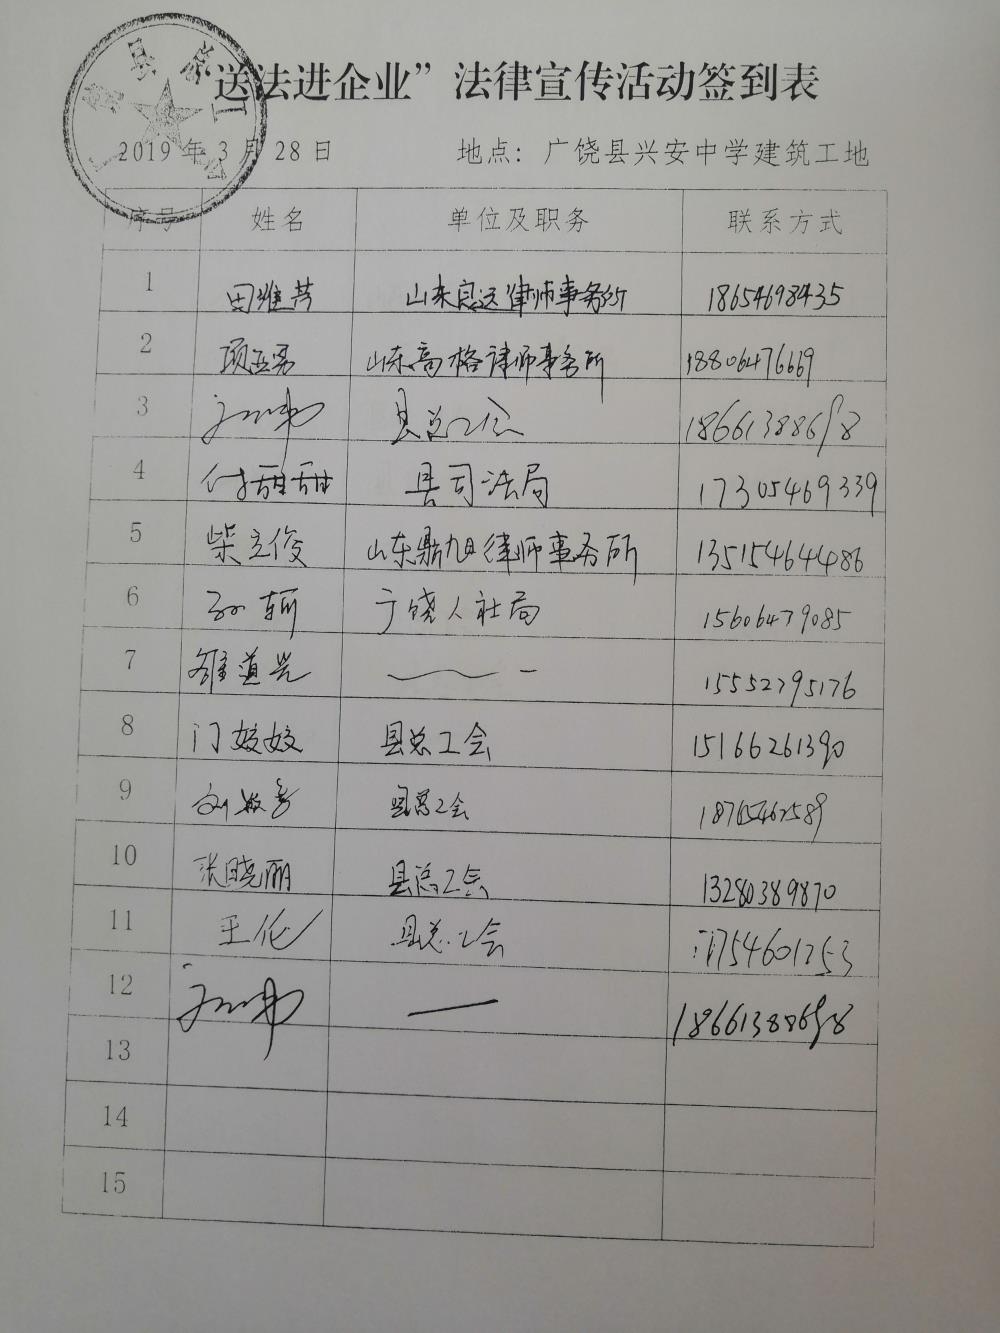 “送法进企业”法律宣传活动签到表
2019年3月28日 地点：广饶县兴安中学建筑工地
序号 姓名 单位及职务 联系方式
1 田维芳 山东良运律师事务所 18654698435
2 项亚男 山东高格律师事务所 18806476669
3 县总工会
4 付甜甜 县司法局 17305469339
5 柴立俊 山东鼎旭律师事务所 13515464486
6 广饶人社局 15606479085
7 道兴 15552795176
8 门姣姣 县总工会 15166261390
9 刘 县总工会 18765462589
10 张晓丽 县总工会 13280389870
11 王伦 县总工会
12 —
13
14
15